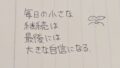 毎日の小さな
継続は
最後には
大きな自信になる。